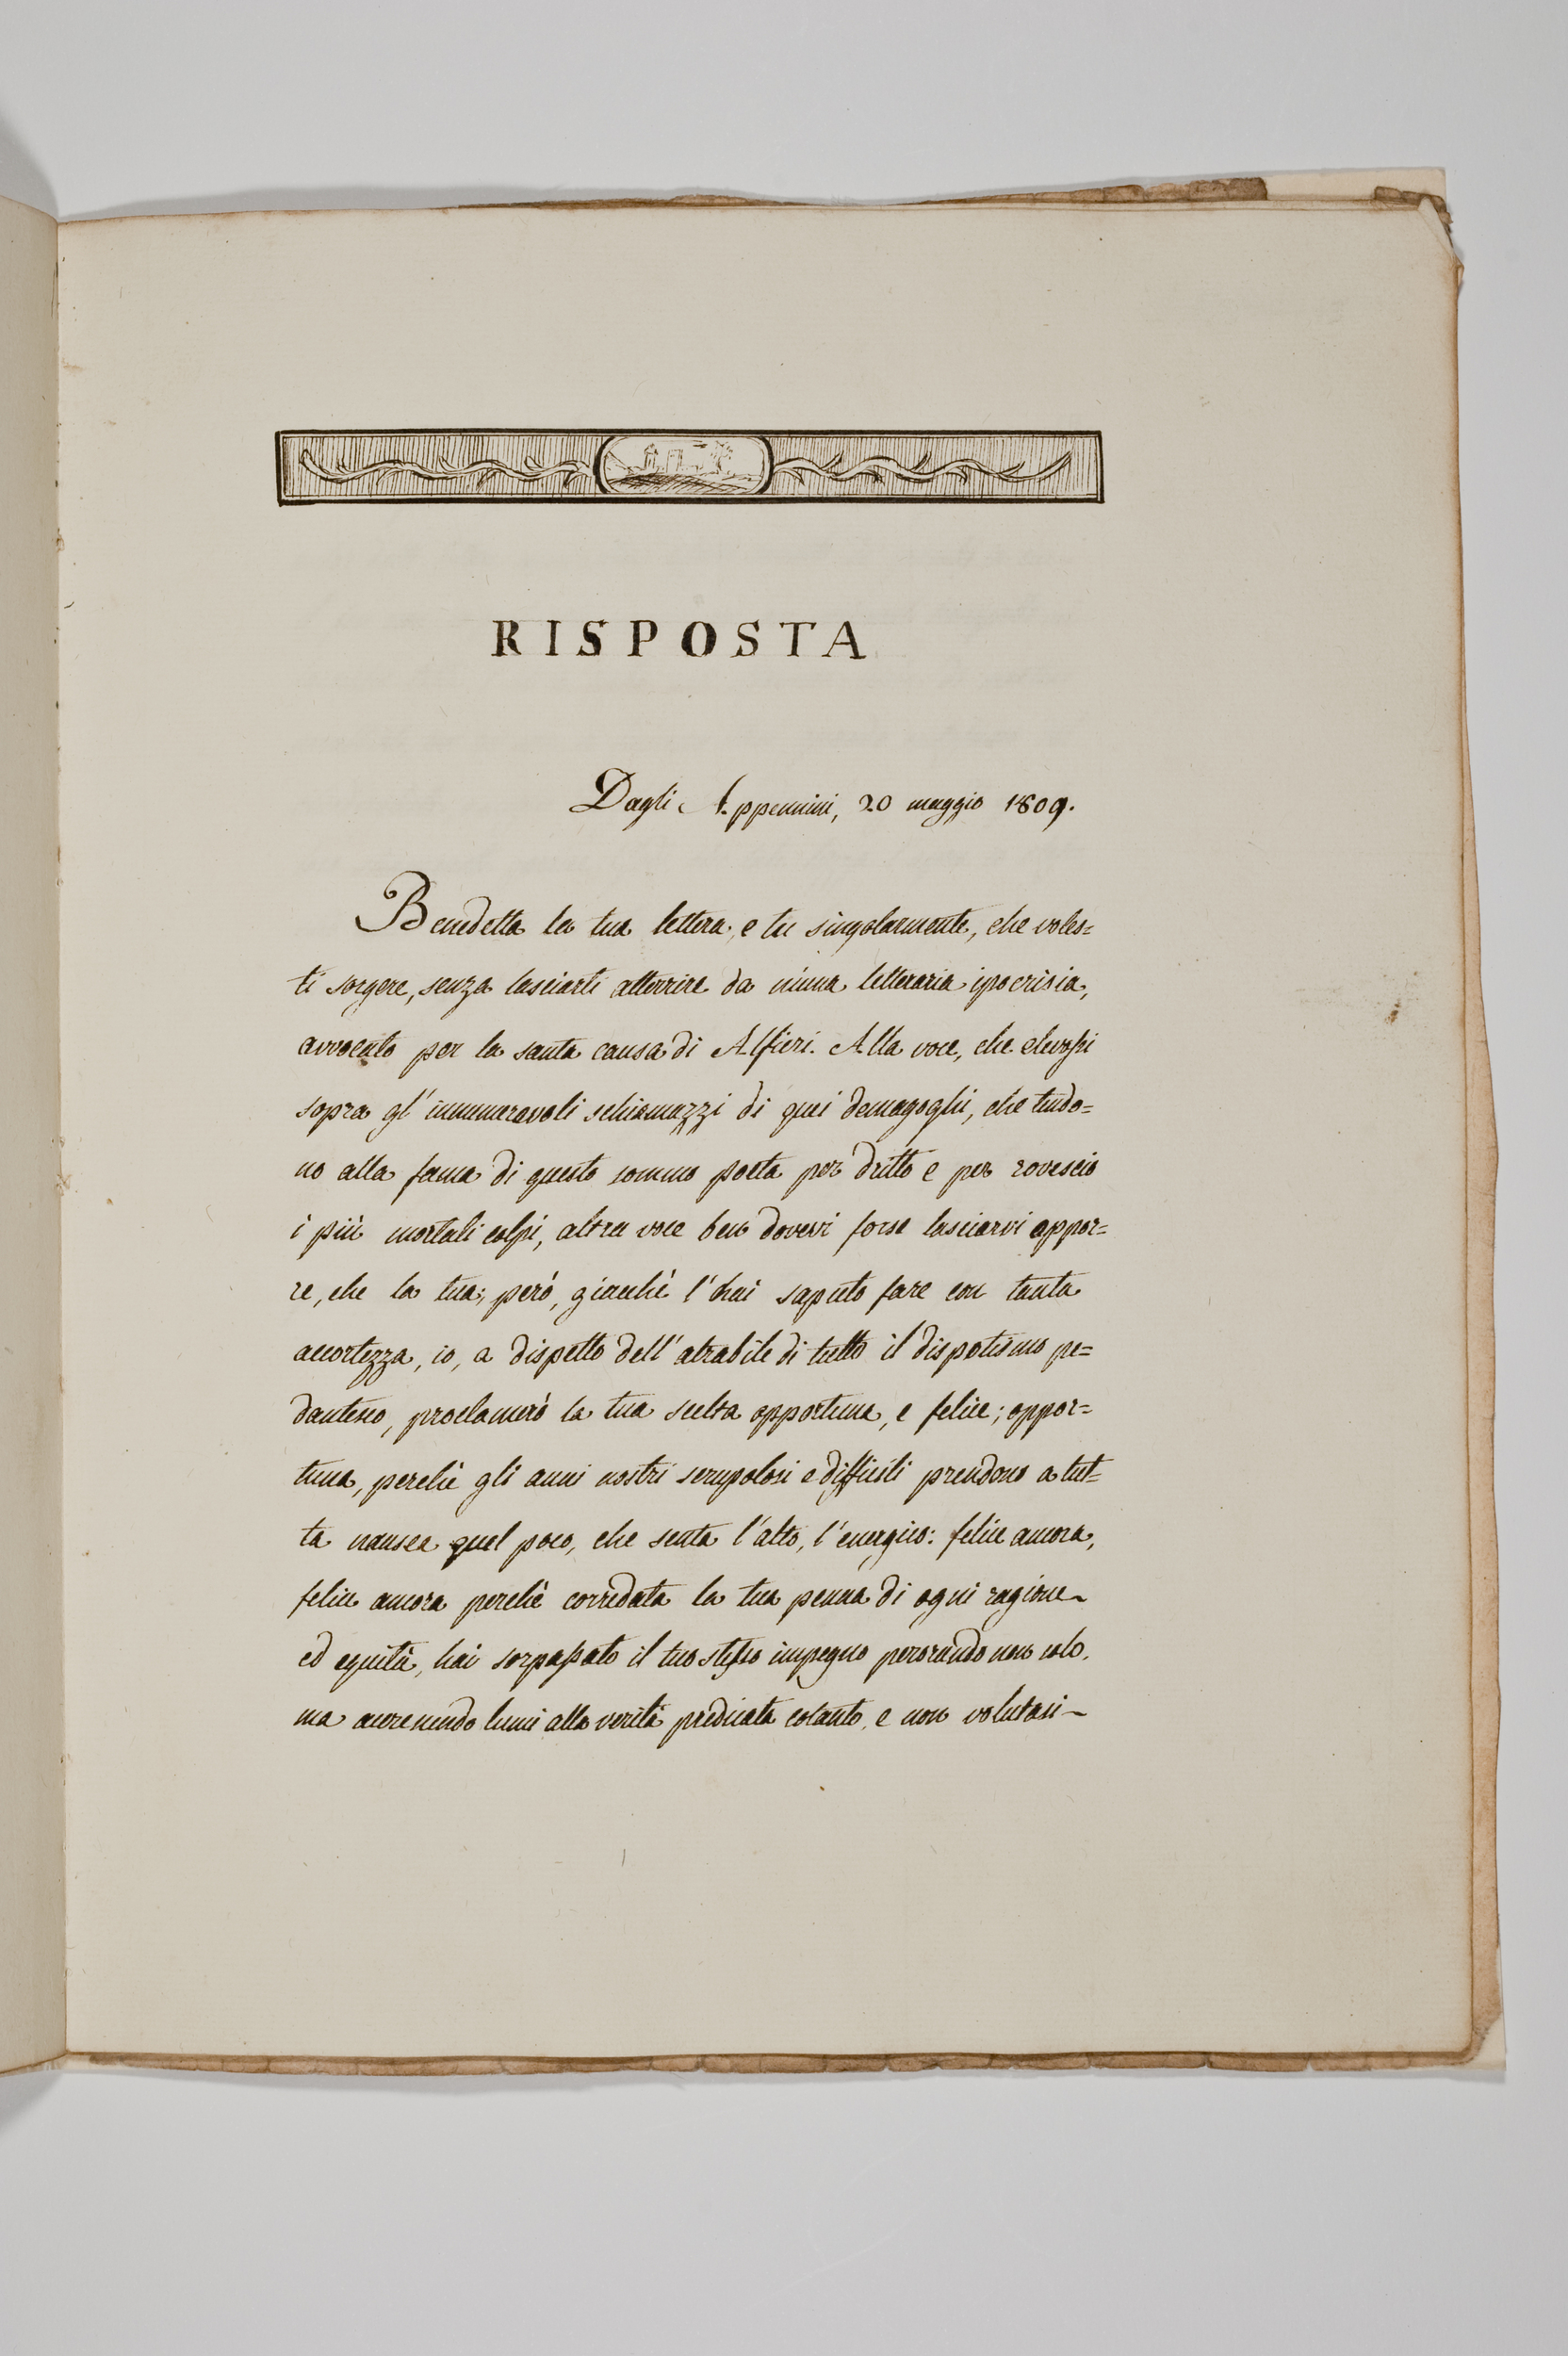 RISPOSTA
Dagli Appennini, 20 maggio 1809.
Benedetta la tua lettera, e tu singolarmente, che voles=
ti sorgere, senza lasciarti atterrire da niuna letteraria ipocrisia,
avvocato per la santa causa di Alfieri. Alla voce, che elevossi
sopra gl'innumerevoli schiamazzi di quei demagoghi, che tendo=
no alla fama di questo sommo poeta per dritto e per rovescio
i più mortali colpi, altra voce ben dovevi forse lasciarvi appor=
re, che la tua; però, giacchè l'hai saputo fare con tanta
accortezza, io, a dispetto dell'atrabile di tutto il dispotismo pe=
dantesco, proclamerò la tua scelta opportuna, e felice; oppor=
tuna, perchè gli anni nostri scrupolosi e difficili prendono a tut=
ta nausea quel poco, che senta l'alto, l'energico: felice ancora,
felice ancora perchè corredata la tua penna di ogni ragione
ed equità, hai sorpassato il tuo stesso impegno perorando non solo,
ma accrescendo lumi alla verità predicata cotanto, e non volutasi